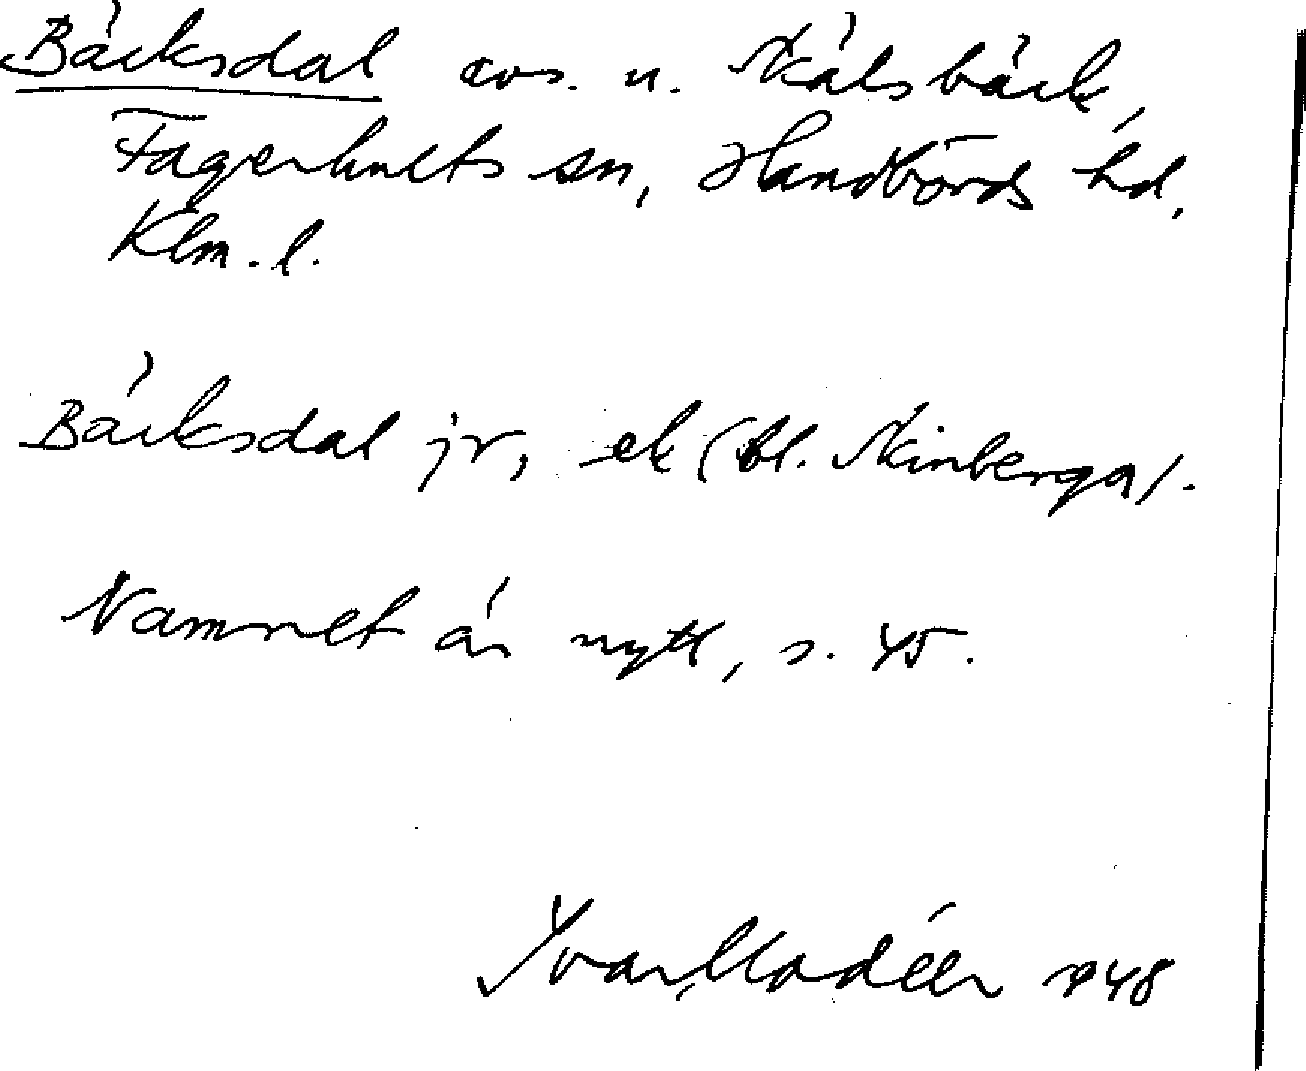 Bäcksdal avs. u. Skälsbäck,
Fagerhults sn, Handbörds hd,
Klm. l.
Bäcksdal jr, ek (bl. Skinberga).
Namnet är nytt, s. 45.
Ivar Modéer 1948